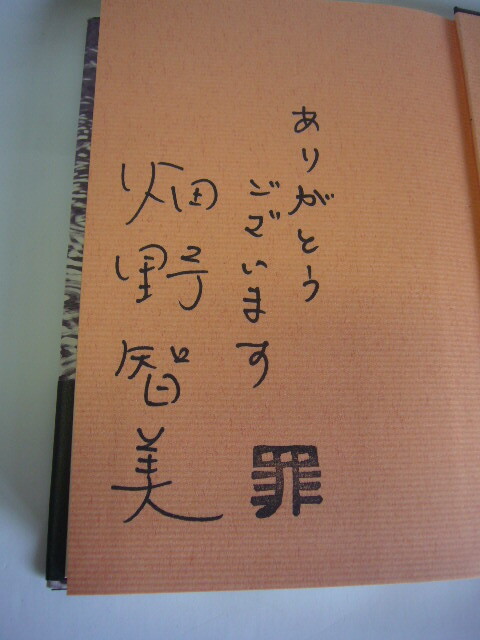 ありがとう
ございます
罪
畑野智美